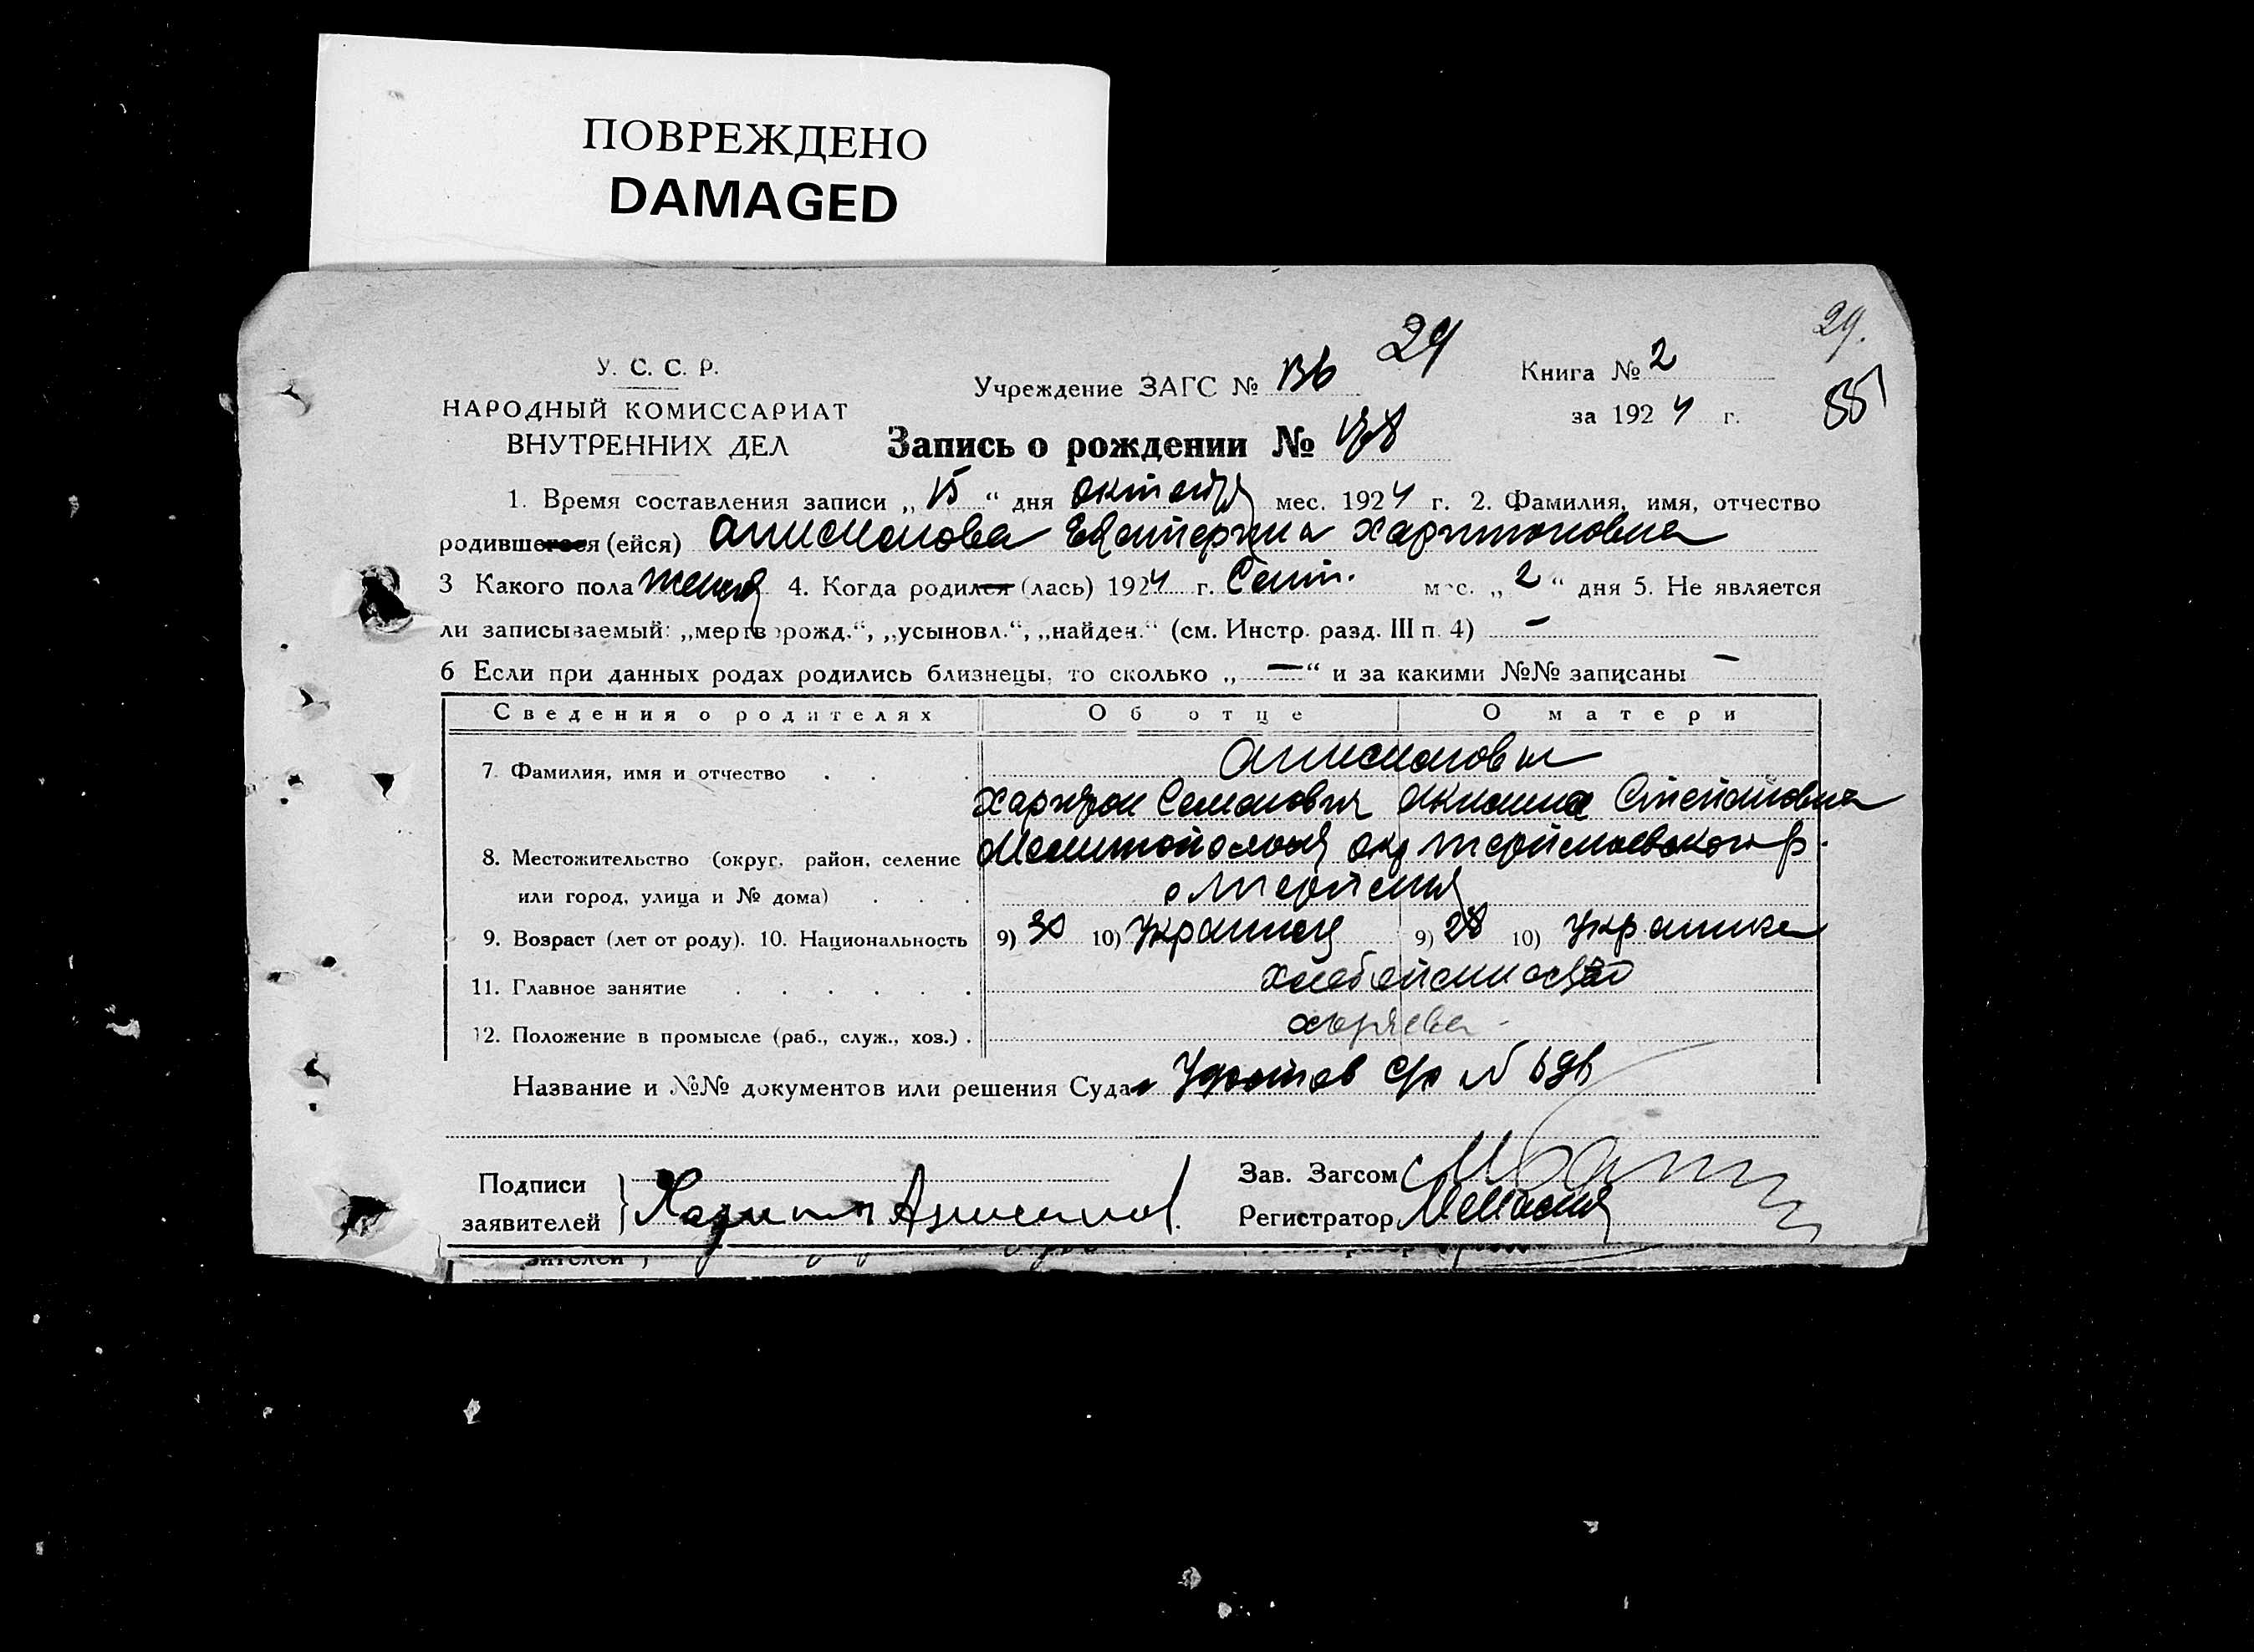 ПОВРЕЖДЕНО
DAMAGED
29.
У. С. С. Р.
НАРОДНЫЙ КОМИССАРИАТ
ВНУТРЕННИХ ДЕЛ
Учреждение ЗАГС №
29
Книга № 2
за 1924 г.
Запись о рождении №
1. Время составления записи „15“ дня октября мес. 1924 г. 2. Фамилия, имя, отчество
родившегося (ейся) Анисимова Екатерина Харитоновна
3 Какого пола женск 4. Когда родился (лась) 1924 г. Сент. мес. „2“ дня 5. Не является
ли записываемый: „мертворожд.“, „усыновл.“, „найден.“ (см. Инстр. разд. III п. 4) –
6 Если при данных родах родились близнецы, то сколько „—“ и за какими №№ записаны –
Сведения о родителях Об отце О матери
7. Фамилия, имя и отчество Анисимовы
Харитон Семенович Акилина Степановна
8. Местожительство (округ, район, селение Мелитопольск окр
или город, улица и № дома)
9. Возраст (лет от роду). 10. Национальность 9) 30 10) Украинец 9) 28 10) Украинка
11. Главное занятие хлебопашество
12. Положение в промысле (раб., служ., хоз.) хозяева
Название и №№ документов или решения Суда
Подписи
заявителей Харитон Анисимов.
Зав. Загсом
Регистратор